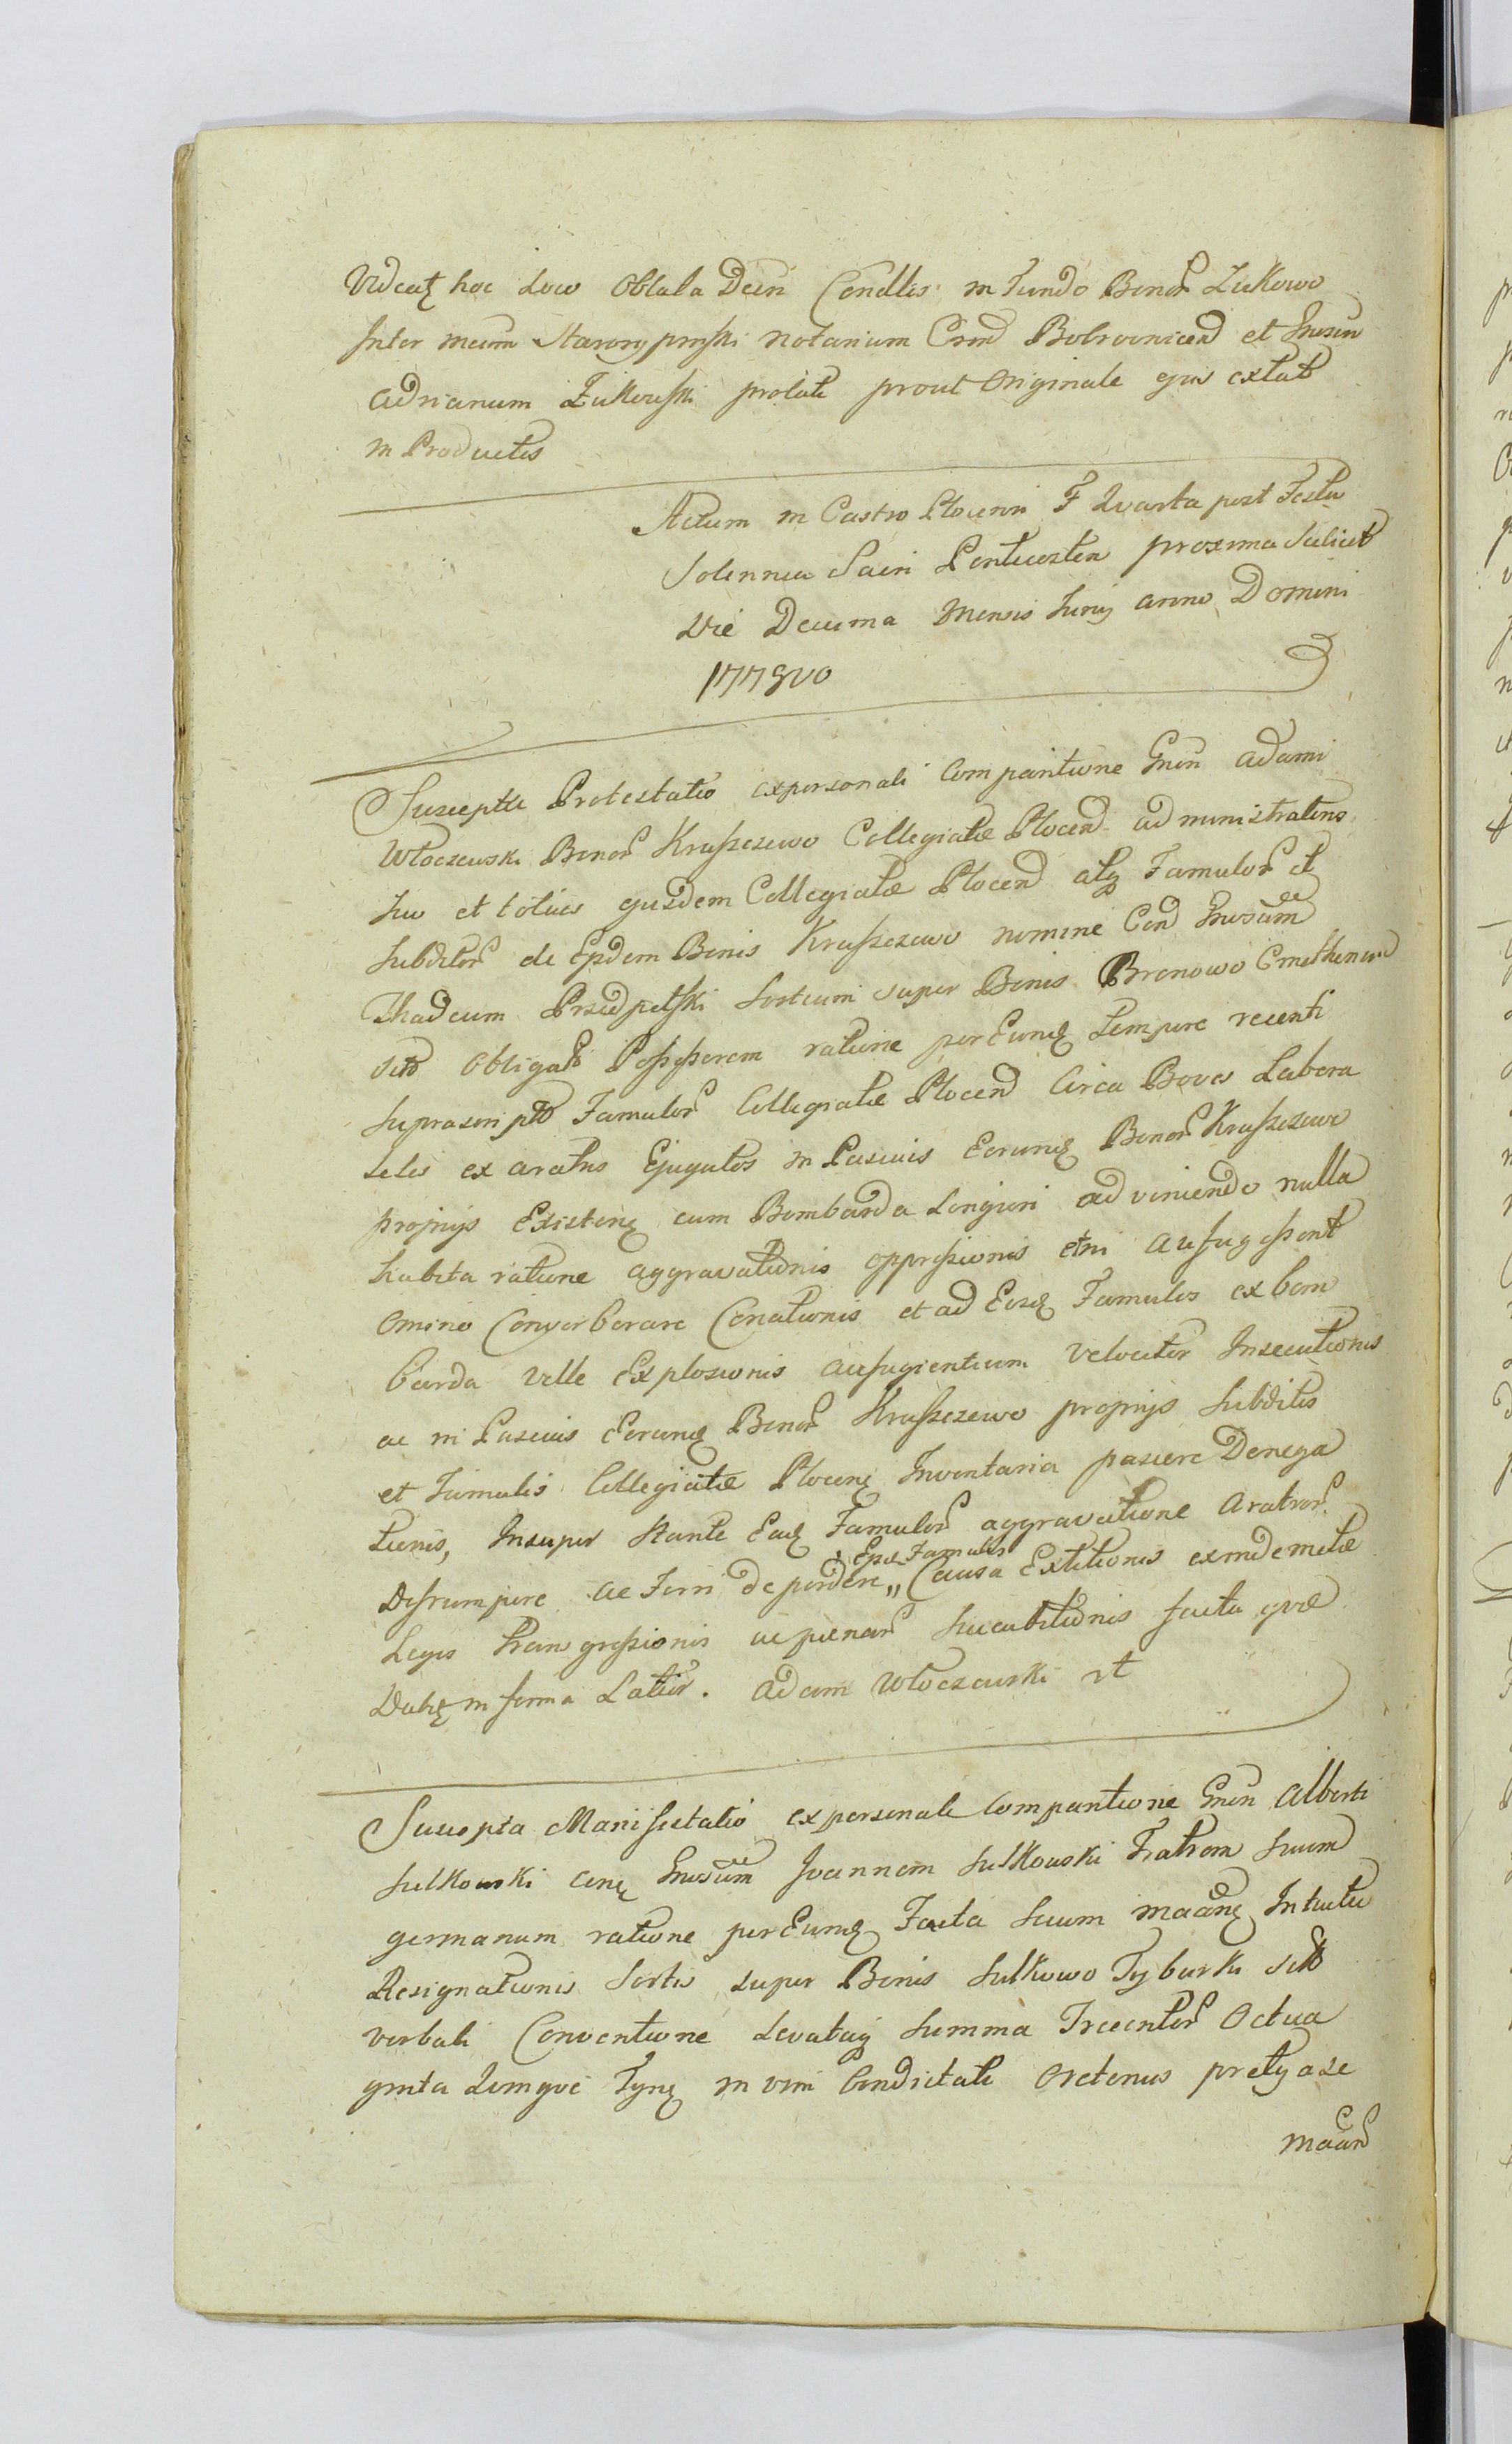 Videatz hoc Loco Oblata Decri Condlis in Fundo Bonor Zukowo
Inter meum notarium Crmd Bobrovnicen et Gnosum
Adrianum Żukowski prolati prout Originale ejus extat
in Productis
Actum in Castro Plocensi F Quarta post Festa
Solennia Sacri Pentecosten proxima Scilicet
Die Decima Mensis Junij anno Domini
1778vo
Suscepta Protestatio ex personali Comparitione Gnsi Adami
Włoczewski Bonor Kruszczewo Collegiatæ Plocen administratoris
suo et totius ejusdem Collegiatæ Plocen atq Famulor et
Subditor de Eisdem Bonis Kruszczewo nomine Con Gnosum
Thadeum Przedpełski Sortium super Bonis Bronowo Cmethen
obligat Possessorem ratione per Eund Tempore recenti
suprascript Famulor Collegiatæ Plocen Circa Boves Labora
seles ex aratris Ejugatos in Pascuis Eorund Bonor Kruszczewo
proprijs Existen cum Bombarda Longiori adveniendo nulla
habita ratione aggravationis oppressionis etni aufugissent
Omino Conyerberare Conationis et ad Eosd Famulos ex bom
barda velle Explosionis aufugientium velociter Insecutionis
ac in Pascuis Eorund Bonor Kruszczewo proprijs Subditis
et Famulis Collegiatæ Plocen Inventaria pascere Denega
tionis, Insuper stante Ead Famulor aggravatione Aratror
Disrumpere ac Ferri deperdere „ Ejus Famulis Causa Extitionis exindemetæ
Legis transgressionis ac pænar Succubitionis facta quæ
Dabitz in forma Latior. Adam Włoczewski
Suscepta Manifestatio ex personali Comparitione Gnsi Alberti
Sulkowski con Gnosum Joannem Sulkowski Fratrem Suum
germanum ratione per Eund Facta Suum Intuitu
Resignationis Sortis super Bonis Sulkowo Tyburki
verbali Conventione Levataq Summa Trecentor Octua
ginta Quinque in vim Condictati Oretenus pretij a se